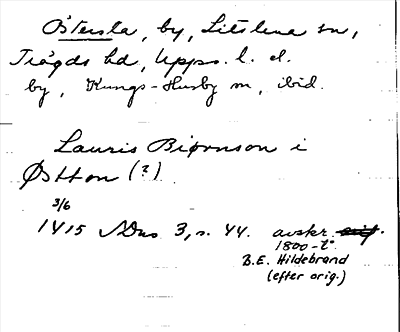 Östersta, by, Litslena sn,
Trögds hd, Upps. l. el.
by, Kungs-Husby sn, ibid.
Lauris Biørnson i
Østton (?)
3/6
1415 SDns 3, s. 44. avskr.
1800-t.
B.E. Hildebrand
(efter orig.)